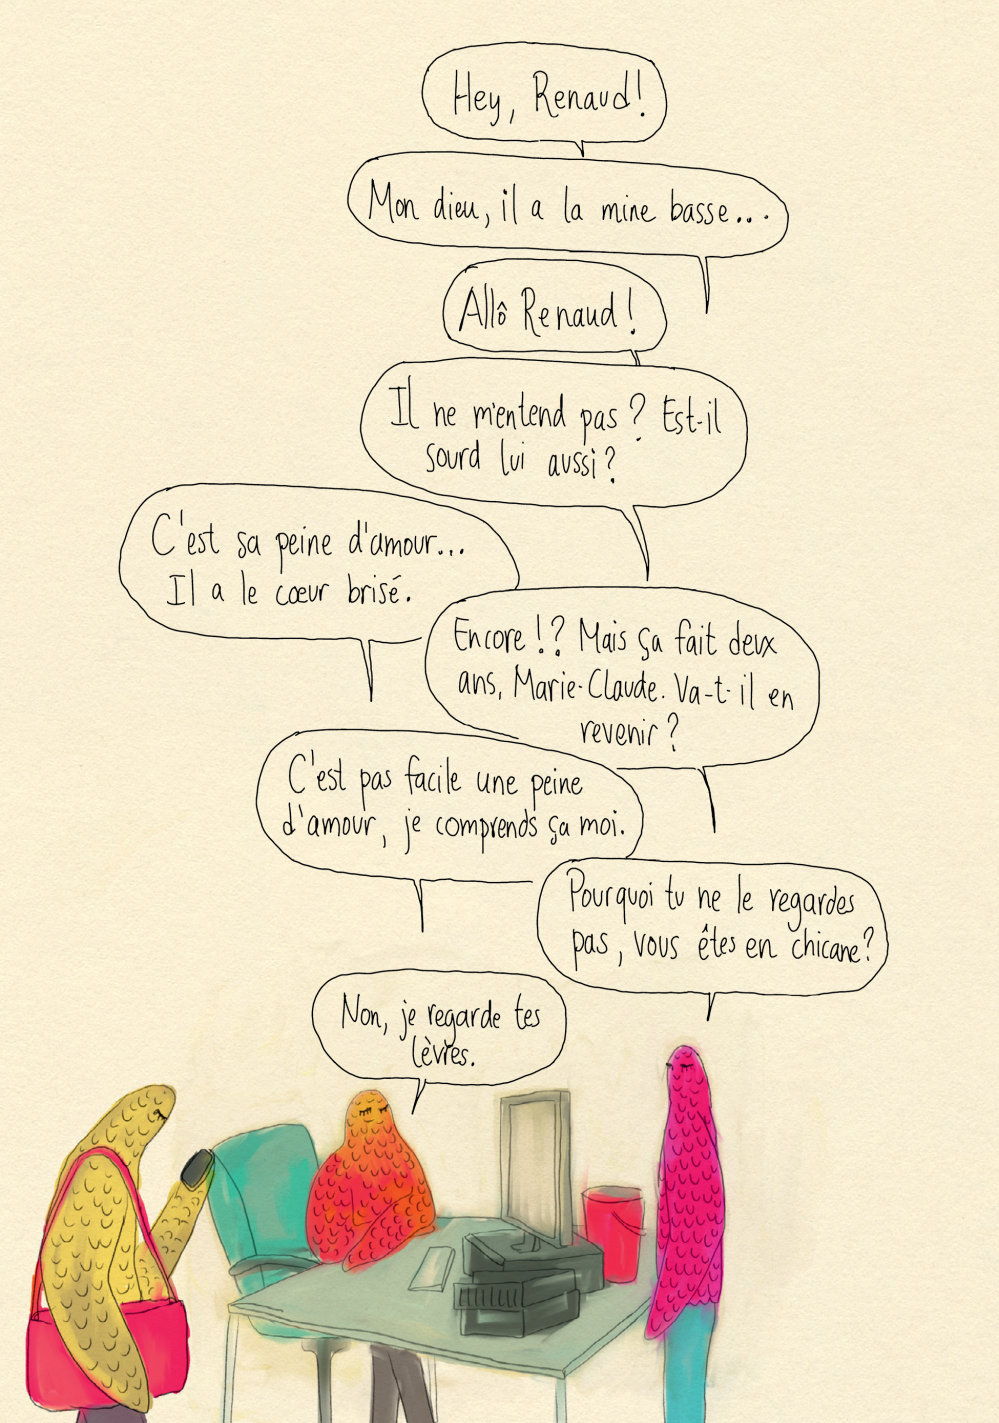 Hey, Renaud!
Mon dieu, il a la mine basse...
Allô Renaud!
Il ne m'entend pas? Est-il
sourd lui aussi?
C'est sa peine d'amour...
Il a le cœur brisé.
Encore!? Mais ça fait deux
ans, Marie-Claude. Va-t-il en
revenir?
C'est pas facile une peine
d'amour, je comprends ça moi.
Pourquoi tu ne le regardes
pas, vous êtes en chicane?
Non, je regarde tes
lèvres.